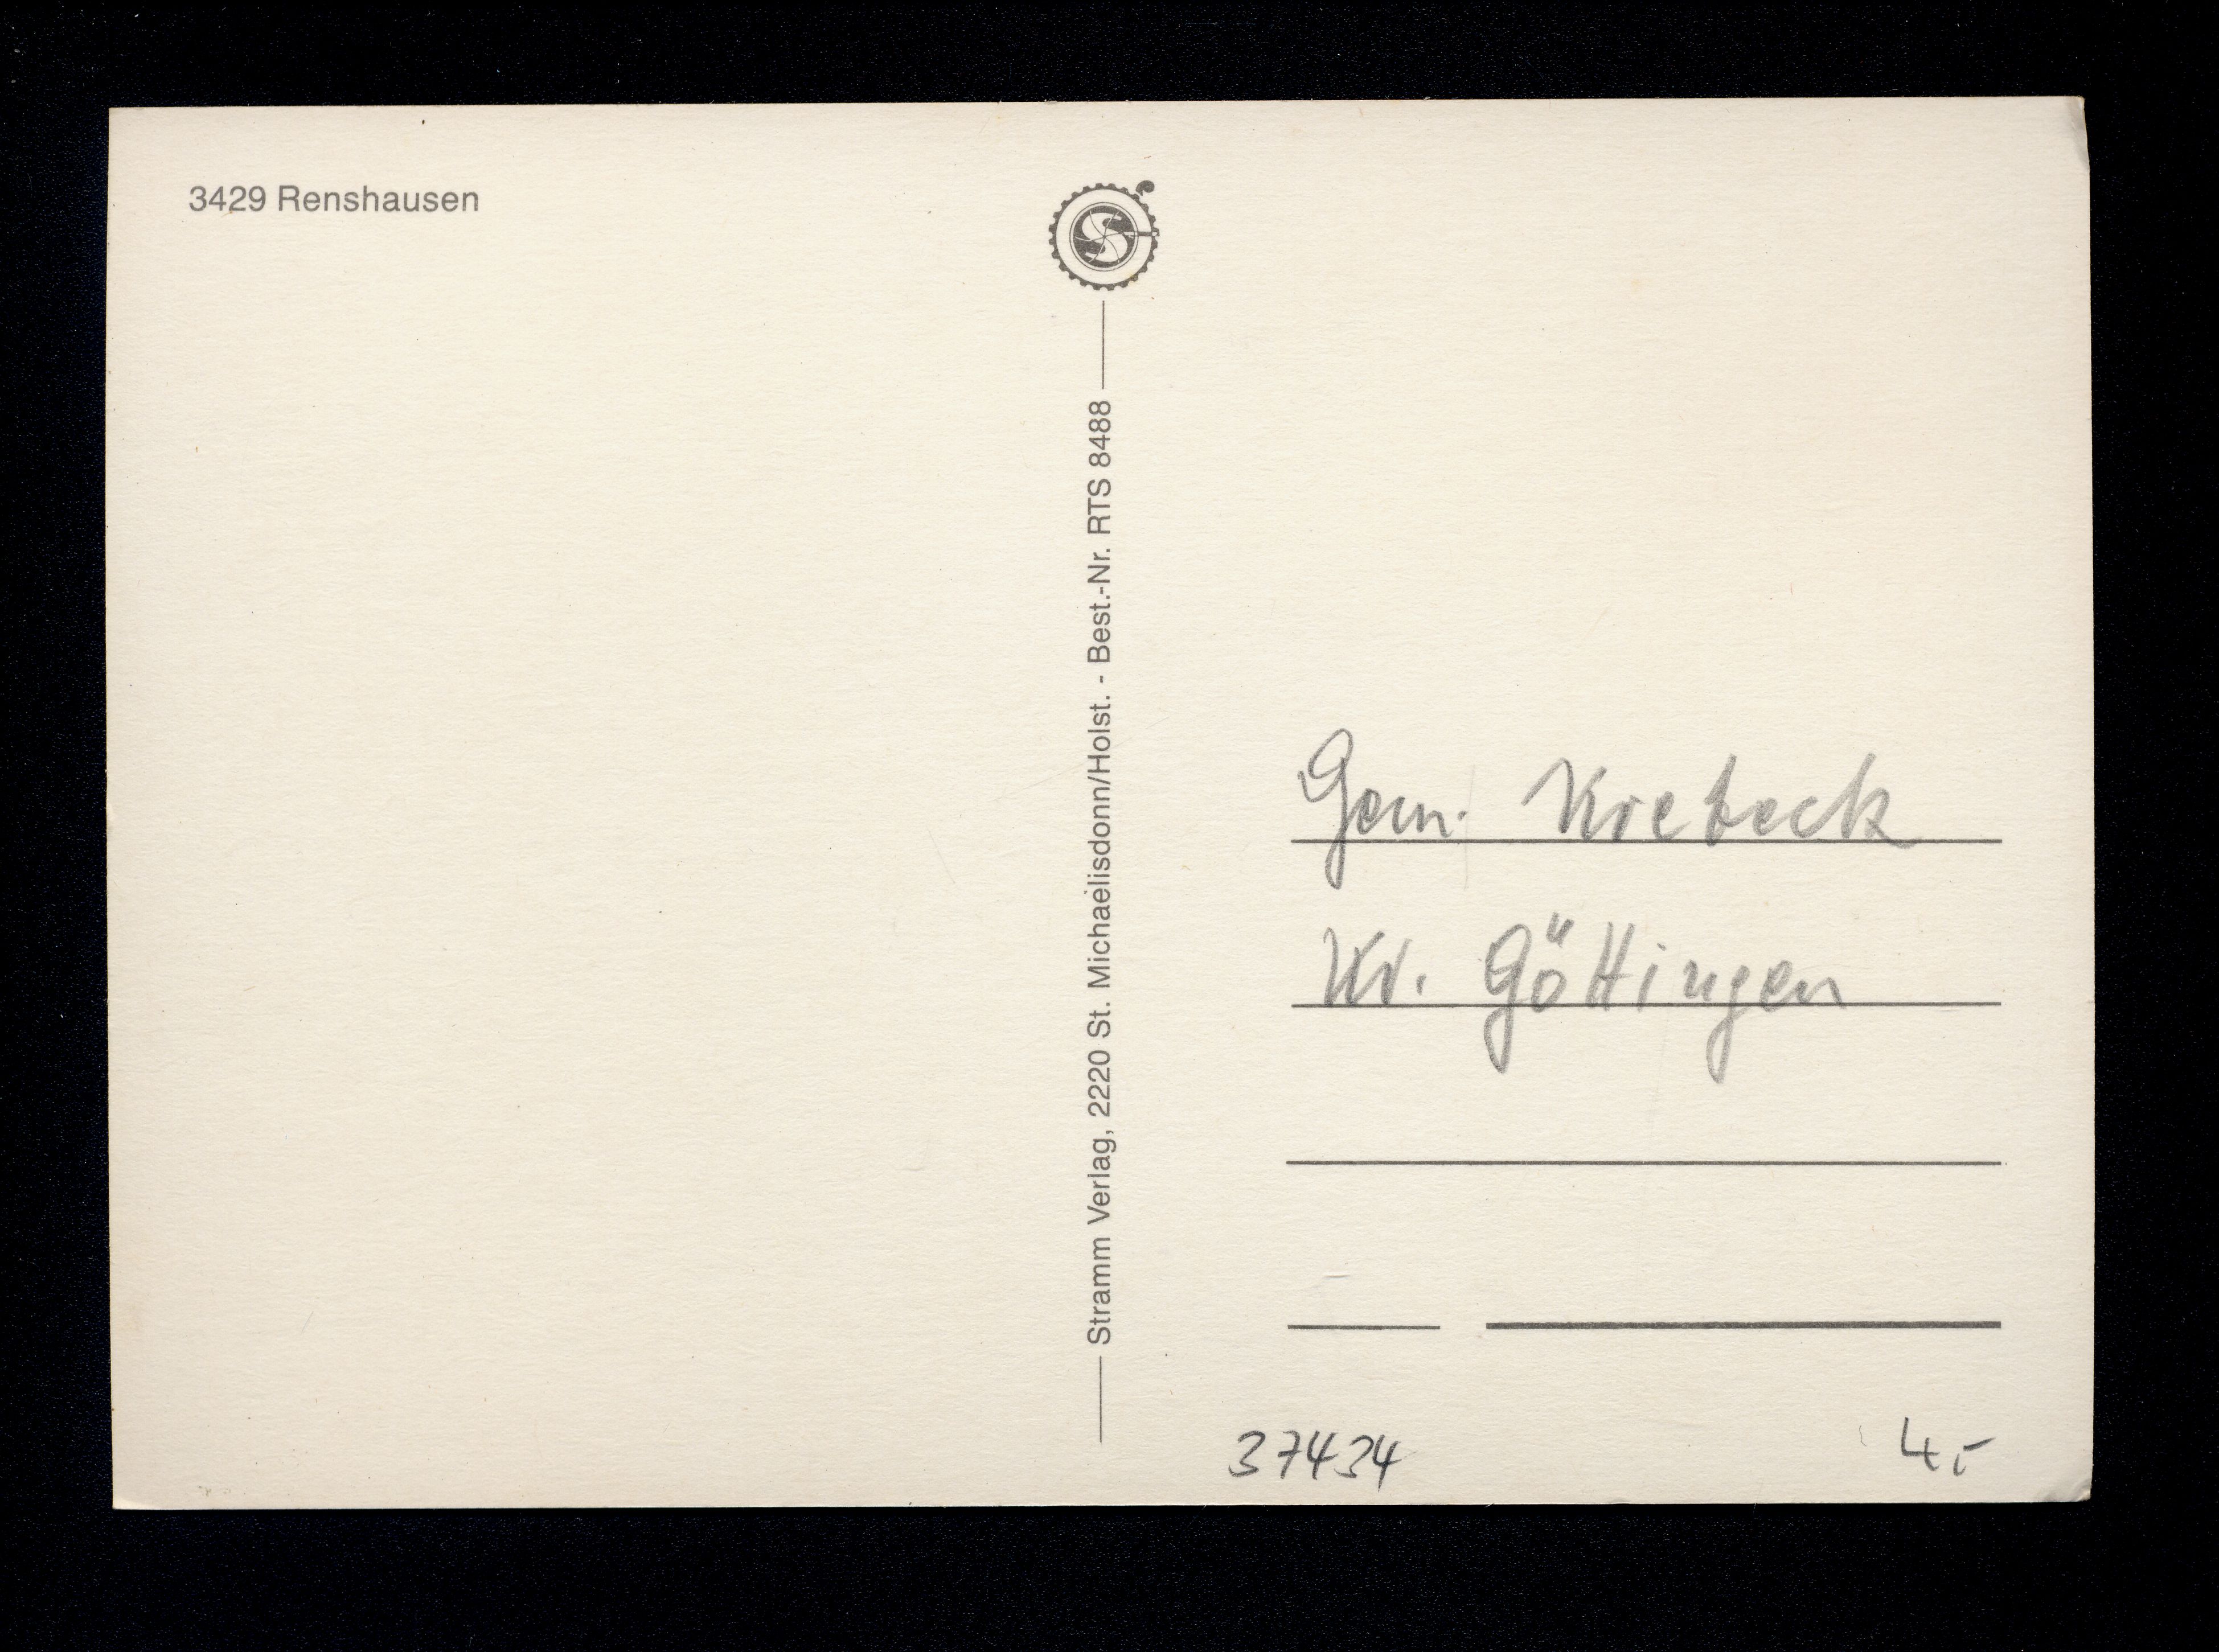 3429 Renshausen
Stramm Verlag, 2220 St. Michaelisdonn/Holst. - Best.-Nr. RTS 8488
Gem. Krebeck
Kr. Göttingen
37434
4,-